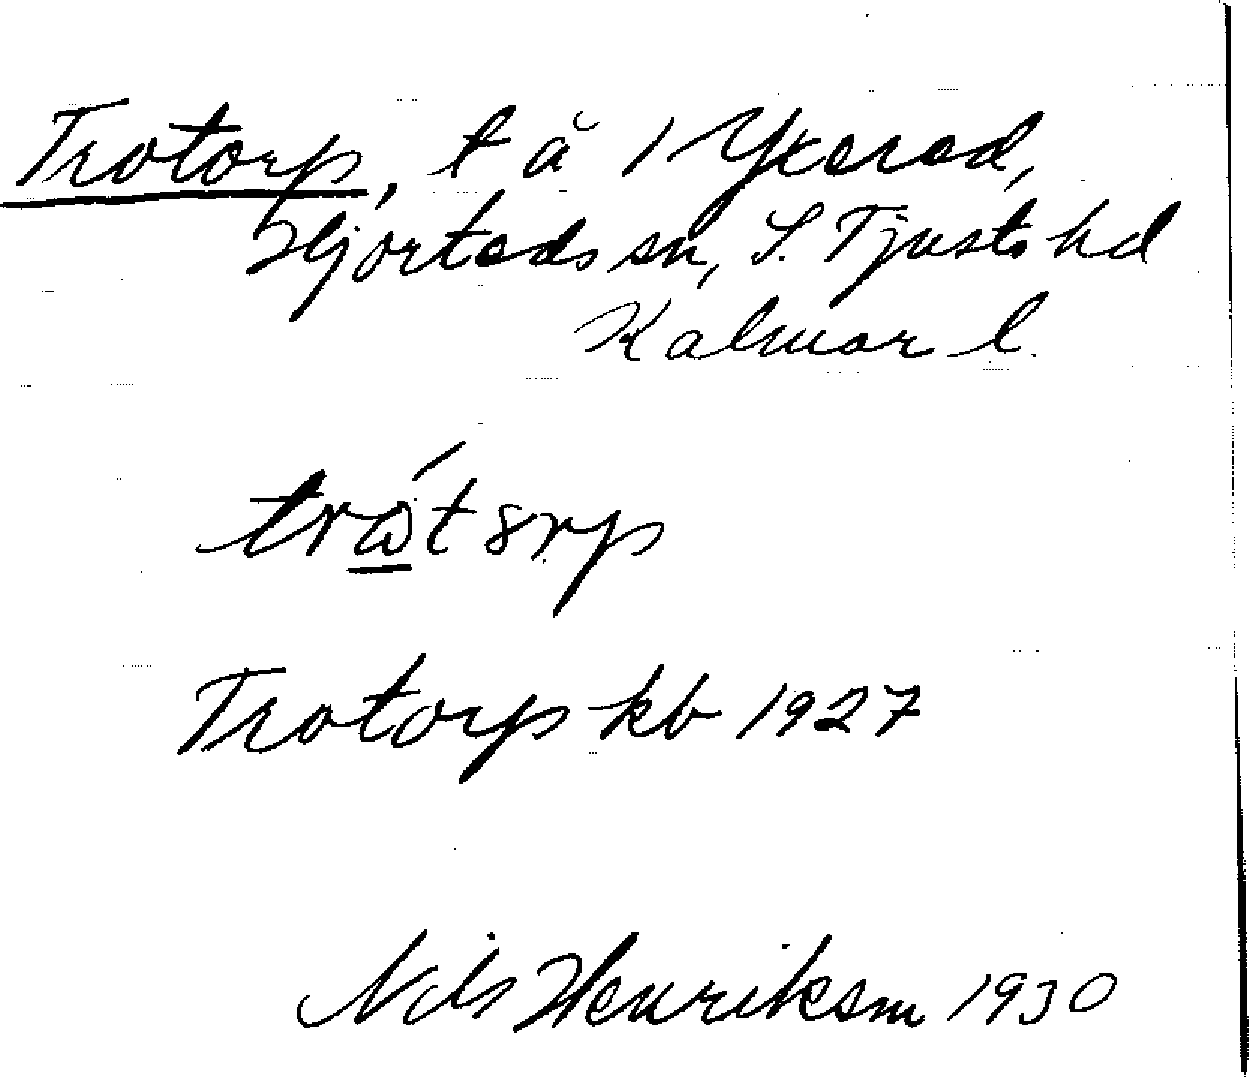 Trotorp, t å 1 Ykered,
Hjorteds sn, S. Tjusts hd
Kalmar l.
trώtsrp
Trotorp kb 1927
Nils Henriksson 1930